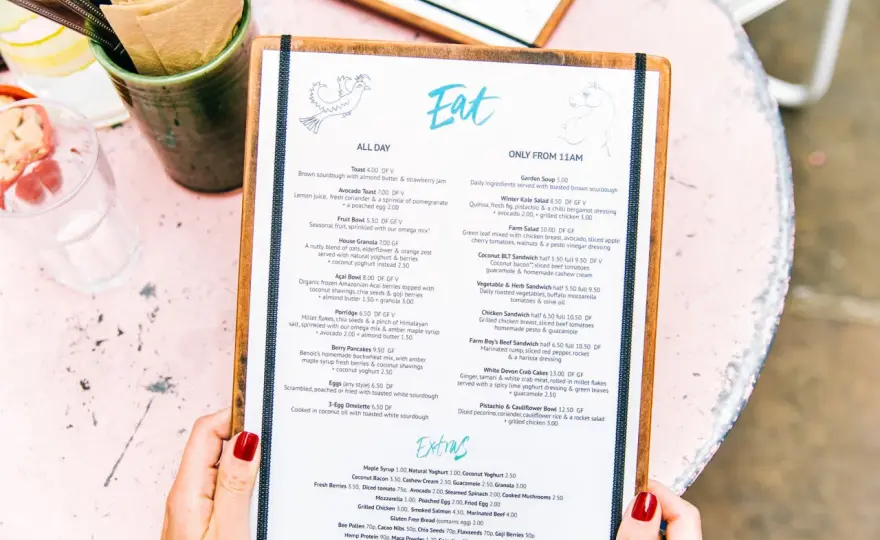 Eat
ALL DAY
Toast 4.00 DF V
Brown sourdough with almond butter & strawberry jam
Avocado Toast 7.00 DF V
Lemon juice, fresh coriander & a sprinkle of pomegranate
+ a poached egg 2.00
Fruit Bowl 5.50 DF GF V
Seasonal fruit, sprinkled with our omega mix!
House Granola 7.00 GF
A nutty blend of oats, elderflower & orange zest
served with natural yoghurt & berries
+ coconut yoghurt instead 2.50
Açai Bowl 8.00 DF GF
Organic frozen Amazonian Acai berries topped with
coconut shavings, chia seeds & goji berries
+ almond butter 1.50 + granola 3.00
Porridge 6.50 DF GF V
Millet flakes, chia seeds & a pinch of Himalayan
salt, sprinkled with our omega mix & amber maple syrup
+ avocado 2.00 + almond butter 1.50
Berry Pancakes 9.50 GF
Benoit's homemade buckwheat mix, with amber
maple syrup fresh berries & coconut shavings
+ coconut yoghurt 2.50
Eggs (any style) 6.50 DF
Scrambled, poached or fried with toasted white sourdough
3-Egg Omelette 6.50 DF
Cooked in coconut oil with toasted white sourdough
ONLY FROM 11AM
Garden Soup 5.00
Daily ingredients served with toasted brown sourdough
Winter Kale Salad 8.50 DF GF V
Quinoa, fresh fig, pistachio & a chilli bergamot dressing
+ avocado 2.00, + grilled chicken 3.00
Farm Salad 10.00 DF GF
Green leaf mixed with chicken breast, avocado, sliced apple
cherry tomatoes, walnuts & a pesto vinegar dressing
Coconut BLT Sandwich half 5.50 full 9.50 DF V
Coconut bacon, sliced beef tomatoes
guacamole & homemade cashew cream
Vegetable & Herb Sandwich half 5.50 full 9.50
Daily roasted vegetables, buffalo mozzarella
tomatoes & olive oil
Chicken Sandwich half 6.50 full 10.50 DF
Grilled chicken breast, sliced beef tomatoes
homemade pesto & guacamole
Farm Boy's Beef Sandwich half 6.50 full 10.50 DF
Marinated rump, sliced red pepper, rocket
& a harissa dressing
White Devon Crab Cakes 13.00 DF GF
Ginger, tamari & white crab meat, rolled in millet flakes
served with a spicy lime yoghurt dressing & green leaves
+ guacamole 2.50
Pistachio & Cauliflower Bowl 12.50 GF
Diced pecorino, coriander, cauliflower rice & a rocket salad
+ grilled chicken 3.00
Extras
Maple Syrup 1.00, Natural Yoghurt 1.00, Coconut Yoghurt 2.50
Coconut Bacon 3.50, Cashew Cream 2.50, Guacamole 2.50, Granola 3.00
Fresh Berries 3.50, Diced tomato 75p, Avocado 2.00, Steamed Spinach 2.00, Cooked Mushrooms 2.50
Mozzarella 3.00, Poached Egg 2.00, Fried Egg 2.00
Grilled Chicken 3.00, Smoked Salmon 4.50, Marinated Beef 4.00
Gluten Free Bread (contains egg) 2.00
Bee Pollen 70p, Cacao Nibs 50p, Chia Seeds 70p, Flaxseeds 70p, Goji Berries 50p
Hemp Protein 90p, Maca Powder